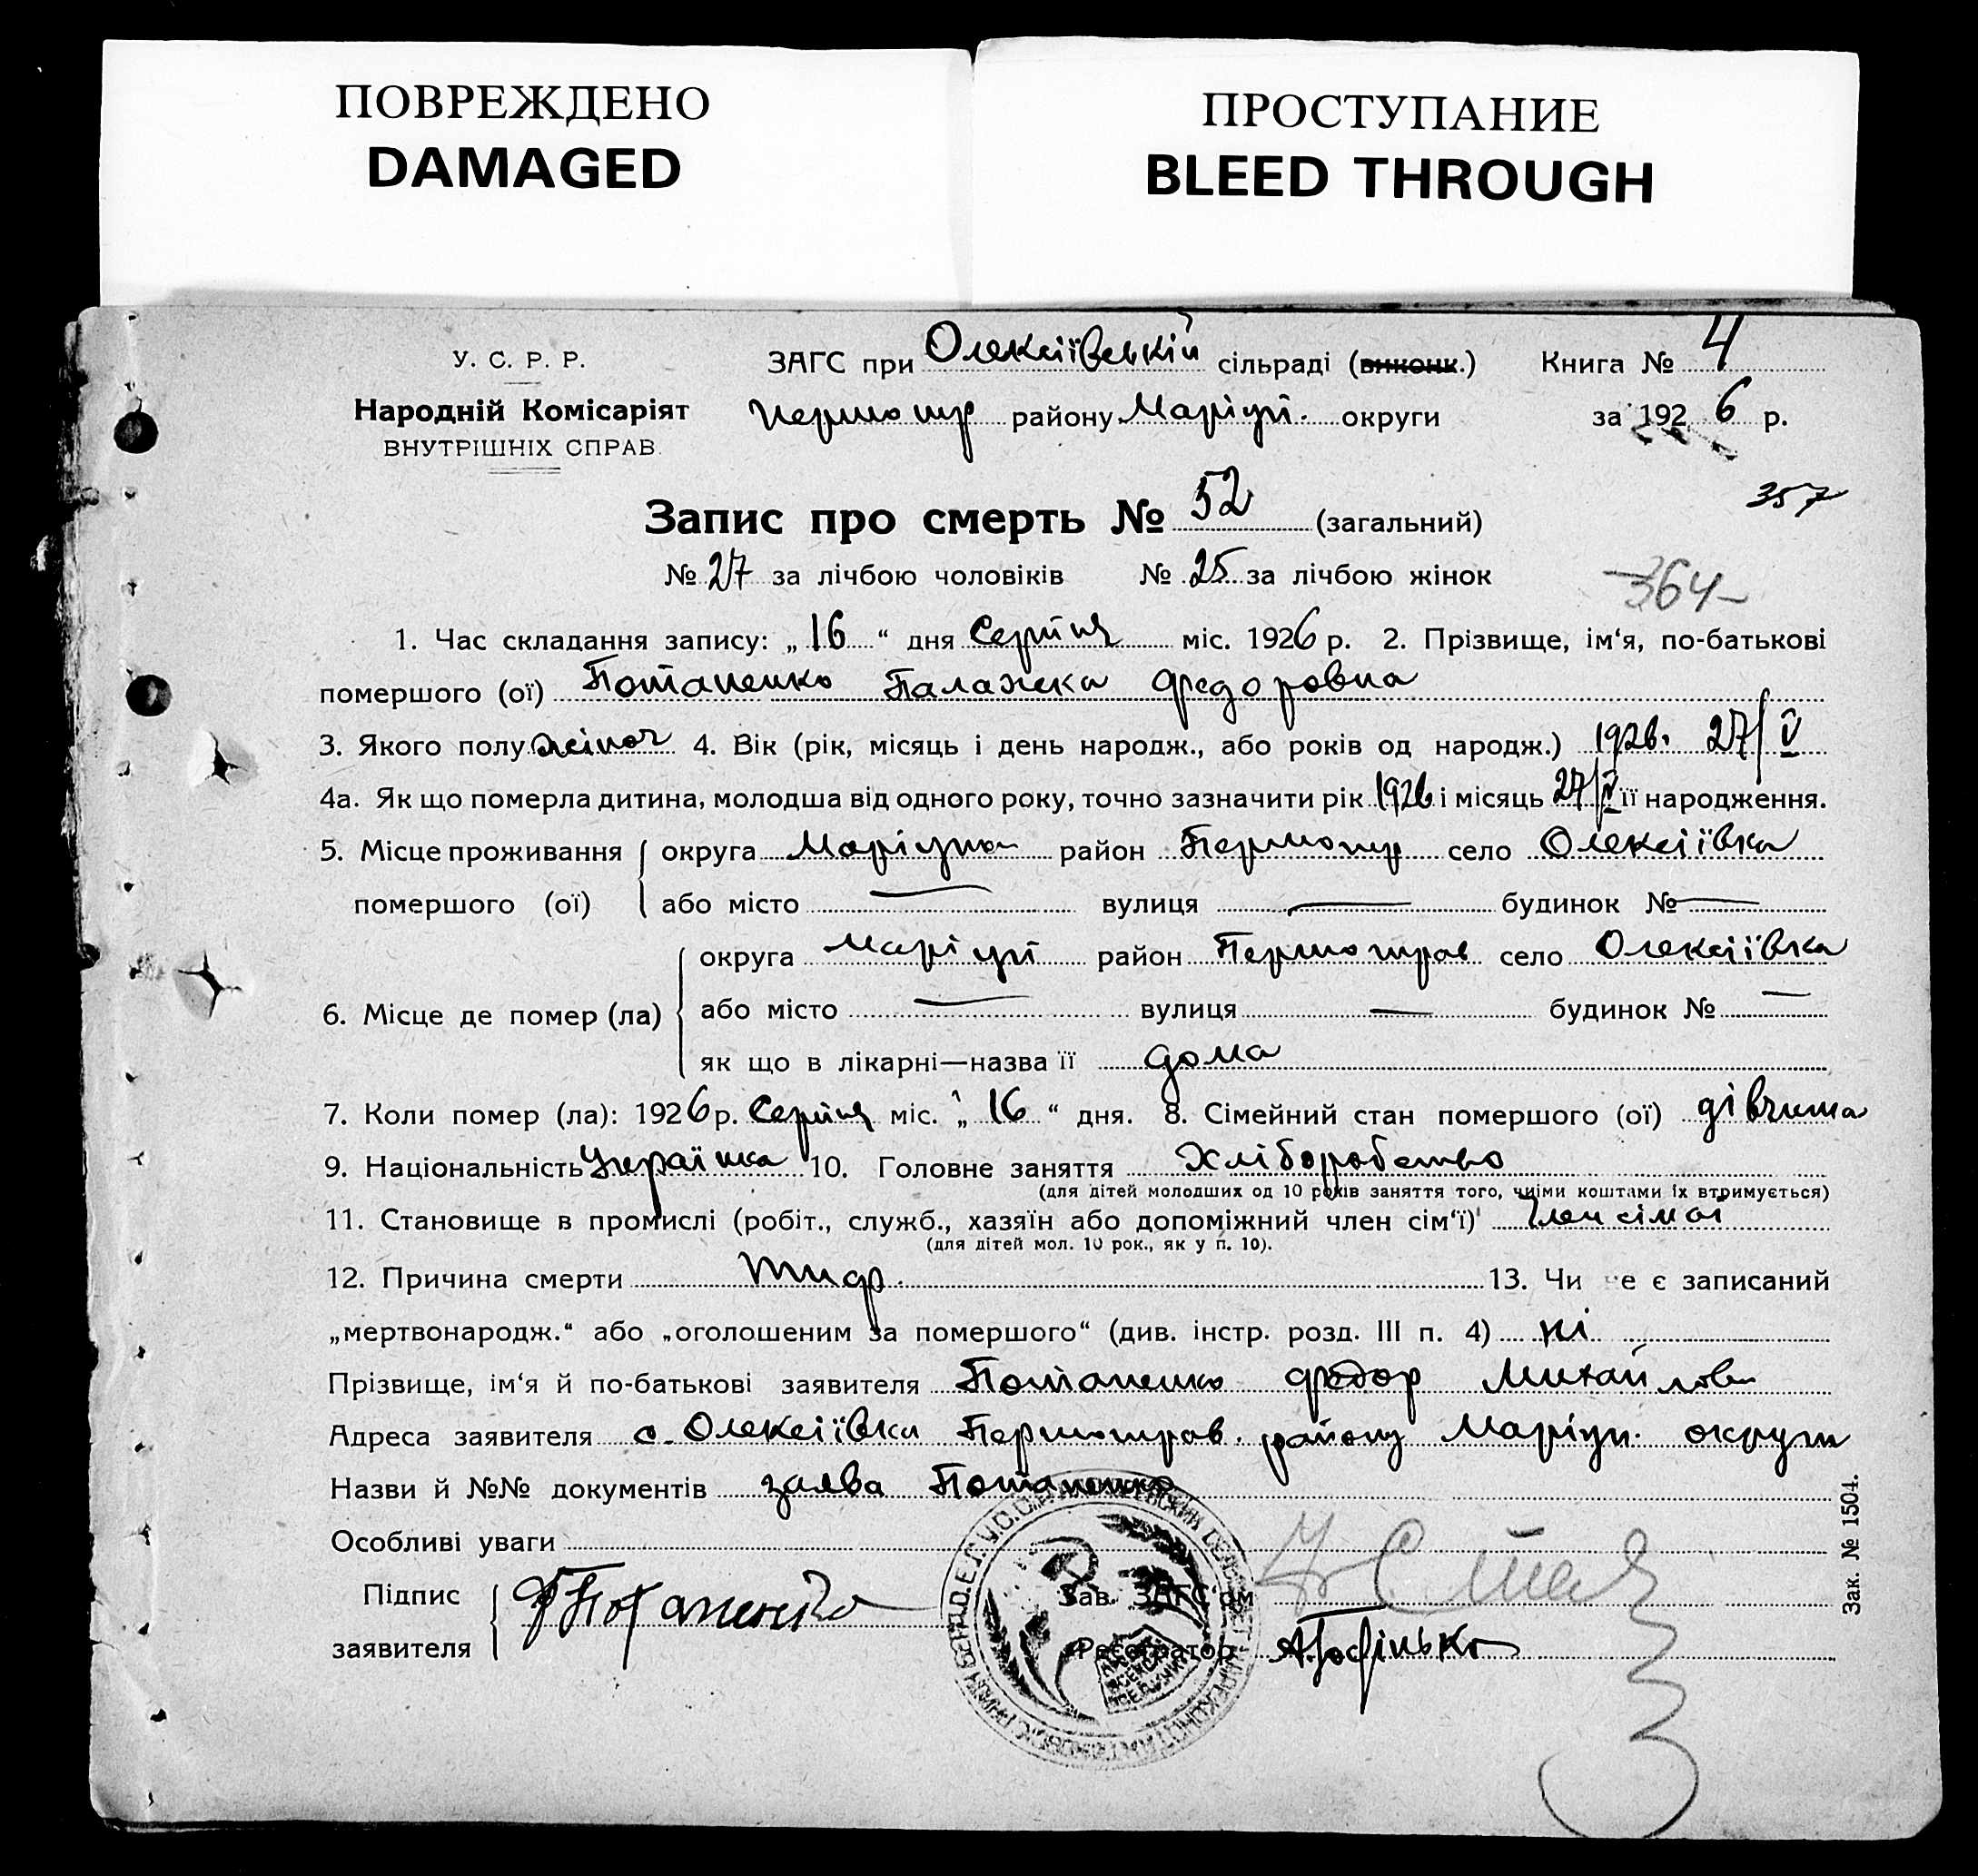 ПОВРЕЖДЕНО
DAMAGED
ПРОСТУПАНИЕ
BLEED THROUGH
У. С. Р. Р.
Народній Комісаріят
ВНУТРІШНІХ СПРАВ.
ЗАГС при Олексіївській сільраді (виконк.) Книга № 4
Першотр району Маріуп. округи за 1926 р.
357
Запис про смерть № 52 (загальний)
№ 27 за лічбою чоловіків № 25 за лічбою жінок
364
1. Час складання запису: „16“ дня Серпня міс. 1926 р. 2. Прізвище, ім‘я, по-батькові
помершого (ої) Потапенко Палажка Федоровна
3. Якого полу жіноч 4. Вік (рік, місяць і день народж., або років од народж.) 1926. 27/V
4а. Як що померла дитина, молодша від одного року, точно зазначити рік 1926 і місяць 27/V її народження.
5. Місце проживання помершого (ої) округа Маріупол район Першотр село Олексіївка
або місто — вулиця — будинок № —
6. Місце де помер (ла) округа Маріуп район Першотрав село Олексіївка
або місто — вулиця — будинок № —
як що в лікарні—назва її дома
7. Коли помер (ла): 1926 р. Серпня міс. „16“ дня. 8. Сімейний стан помершого (ої) дівчина
9. Національність Українка 10. Головне заняття Хліборобство
(для дітей молодших од 10 років заняття того, чиїми коштами їх втримується)
11. Становище в промислі (робіт., служб., хазяїн або допоміжний член сім‘ї) Член сімої
(для дітей мол. 10 рок., як у п. 10).
12. Причина смерти тиф. 13. Чи не є записаний
„мертвонародж.“ або „оголошеним за помершого“ (див. інстр. розд. III п. 4) ні
Прізвище, ім‘я й по-батькові заявителя Потапенко Федор Михайлов
Адреса заявителя с. Олексіївка Першотрав. району Маріуп. округи
Назви й №№ документів заява Потапенко
Особливі уваги
Підпис заявителя Ф Потапенко
Зав. ЗАГС‘ом
Реєстратор
Зак. № 1504.